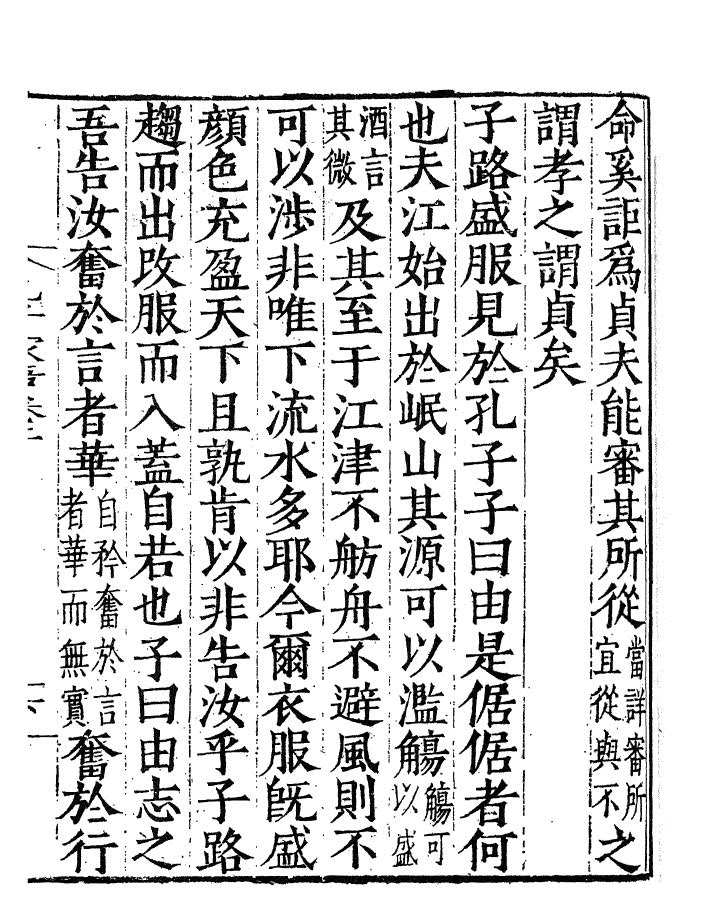 命奚詎爲貞夫能審其所從當詳審所宜從與不之
謂孝之謂貞矣
子路盛服見於孔子子曰由是倨倨者何
也夫江始出於岷山其源可以濫觴觴可以盛
酒言其微及其至于江津不舫舟不避風則不
可以涉非唯下流水多耶今爾衣服旣盛
顔色充盈天下且孰肯以非告汝乎子路
趨而出改服而入蓋自若也子曰由志之
吾告汝奮於言者華自矜奮於言者華而無實奮於行